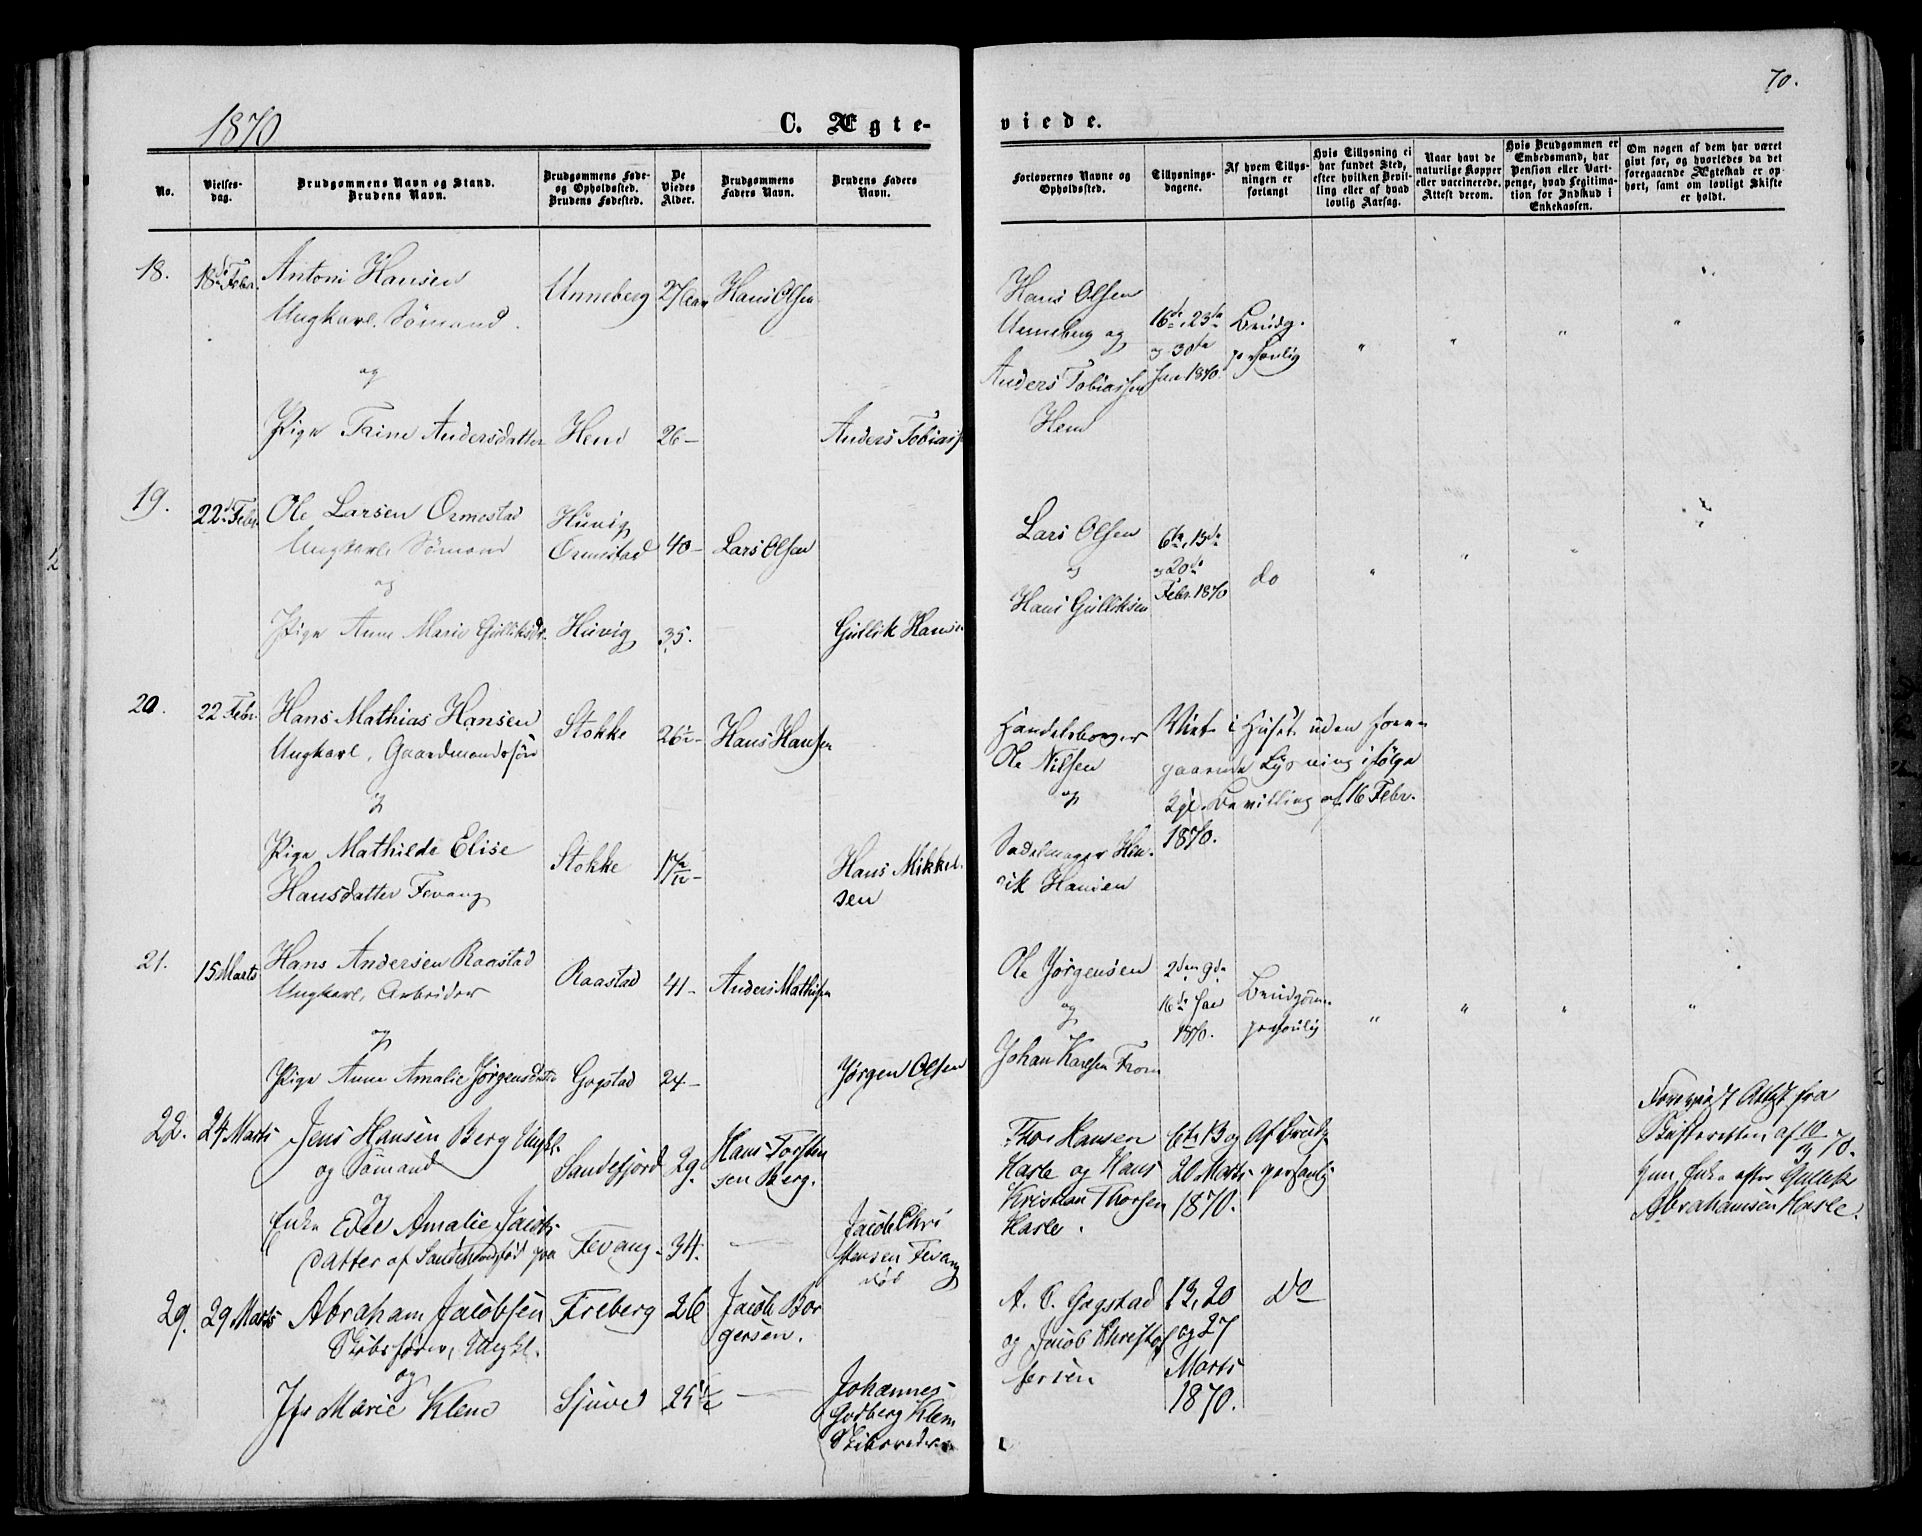 1870
C. Ægte-
No.
Vielses-
dag.
Brudgommens Navn og Stand.
Brudens Navn.
Brudgommens Føde-
og Opholdssted.
Brudens Fødested.
De
Viedes
Alder.
Brudgommens
Faders Navn.
Brudens Faders
Navn.
18.
18de Febr.
Antoni Hansen
Ungkarl. Sømand.
Unneberg
27 Aar
Hans Olsen
og
Pige Trine Andersdatter
Hem
26 –
Anders Tobiass
19.
22de Febr.
Ole Larsen Ormestad
Ungkarl, Sømand
Huvig
Ormestad
40 –
Lars Olsen
og
Pige Anne Marie Gulliksdr.
Huvig
35.
Gullik Hansen
20.
22 Febr.
Hans Mathias Hansen
Ungkarl, Gaardmandssøn
Stokke
26½ –
Hans Hansen
og
Pige Mathilde Elise
Hansdatter Fevang
Stokke
17
Hans Mikkel-
sen
21.
15 Marts
Hans Andersen Raastad
Ungkarl, Arbeider
Raastad
41 –
Anders Mathisen
og
Pige Anne Amalie Jørgensdatter
Gogstad
24 –
Jørgen Olsen
22.
24 Marts
Jens Hansen Berg Ungkl.
og Sømand
Sandefjord
29.
Hans Torsten
sen Berg.
og
Enke Amalie Jacobs-
datter af fra
Fevang
34.
Jacob Chri
stensen Fevang
død
29.
29 Marts
Abraham Jacobsen
Skibsfører, Ungkl.
Freberg
26
Jacob Bor
gersen.
og
Jfr Marie Klem
Sjuve
25½
Johannes
Godberg Klem
Skibsreder
70.
viede.
Forlovernes Navne og
Opholdssted.
Tillysnings-
dagene.
Af hvem Tillys-
ningen er
forlangt
Hvis Tillysning ei
har fundet Sted,
efter hvilken Bevil-
ling eller af hvad
lovlig Aarsag.
Naar havt de
naturlige Kopper
eller vaccinerede.
Attest derom.
Hvis Brudgommen er
Embedsmand, har
Pension eller Vart-
penge, hvad Legitima-
tion for Indskud i
Enkekassen.
Om nogen af dem har været
gift før, og hvorledes da det
foregaaende Ægteskab er op-
hørt, samt om lovligt Skifte
er holdt.
Hans Olsen
Unneberg og
Anders Tobiassen
Hem
16de, 23de
og 30te
Jan 1870.
Brudg.
personlig
Lars Olsen
og
Hans Gulliksen
6te, 13de
og 20de
Febr. 1870
do
Handelsborger
Ole Nilsen
og
Sadelmager Hen-
rik Hansen
Viet i Huset uden fore-
gaaende Lysning ifølge
Kgl. Bevilling af 16 Febr.
1870.
Ole Jørgensen
og
Johan Karlsen From
2den, 9de
16de Jan
1870.
Brudgom.
personlig
Thor Hansen
Hasle og Hans
Kristian Thorsen
Hasle.
6te 13 og
20 Marts
1870.
Af Brudg.
personlig
Forevist Attest fra
Skifteretten af 10/3 70.
hun Enke efter Gullik
Abrahamsen Hasle.
A. C. Gogstad
og Jacob Christof
fersen
13, 20
og 27
Marts
1870.
do